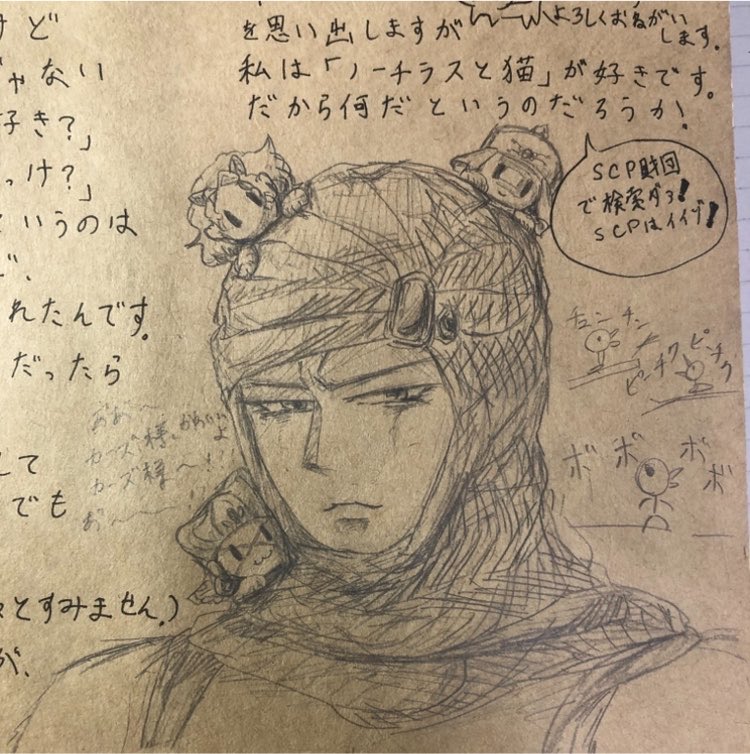 を思い出しますが
よろしくおねがい
します。
私は「ノーチラスと猫」が好きです。
だから何だというのだろうか!
SCP財団
で検索ダヨ!
SCPはイイゾ!
けど
じゃない
好き?」
っけ?」
というのは
ど、
れたんです。
だったら
して
でも
とすみません。)
が、
チュンチュン
ピーチクピーチク
ボボボボ
おお〜
カーズ様、かわいい
よ
カーズ様〜!!
お〜